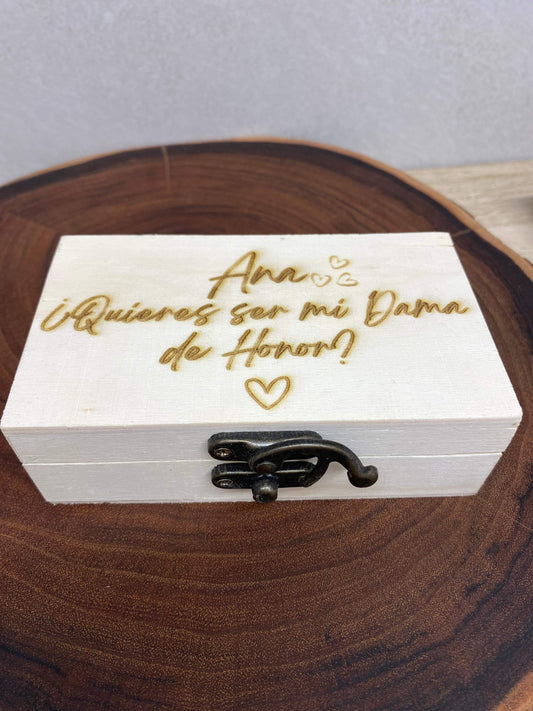 Ana
¿Quieres ser mi Dama
de Honor?